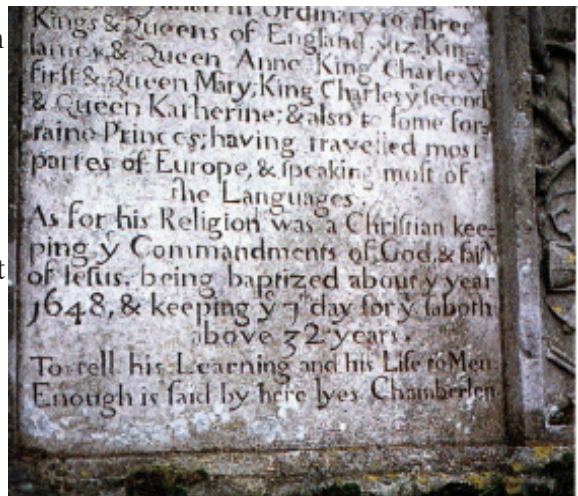 in Ordinary to three
Kings & Queens of England. viz. King
Iames & Queen Anne King Charles yͤ
firſt & Queen Mary; King Charles yͤ ſecond
& Queen Katherine; & alſo to ſome for-
raine Princes; having travelled moſt
partes of Europe, & ſpeaking moſt of
the Languages.
As for his Religion was a Chriſtian kee-
ping yͤ Commandments of God, & faith
of Ieſus. being baptized about yͤ year
1648, & keeping yͤ 7th day for yͤ ſaboth
above 32 years.
To tell his Learning and his Life to Men.
Enough is ſaid by here lyes Chamberlen